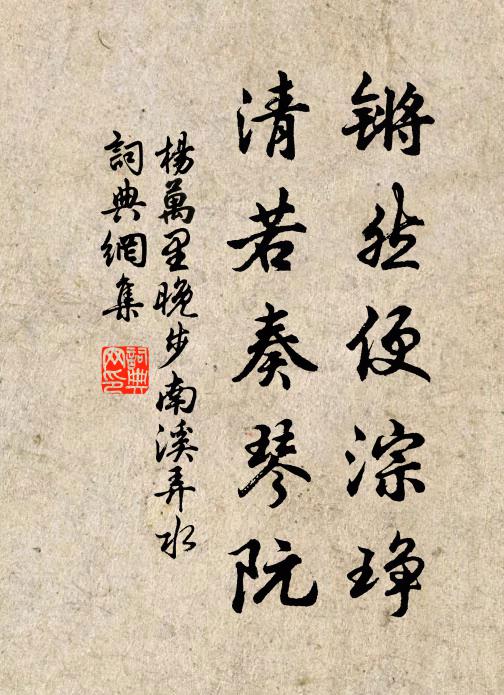 锵然便淙琤
清若奏琴阮
楊萬里晚步南溪弄水
詞典網集
詞典网印